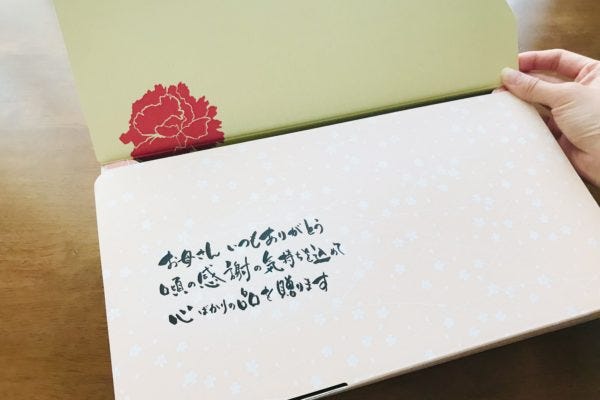 お母さん いつもありがとう
日頃の感謝の気持ちを込めて
心ばかりの品を贈ります